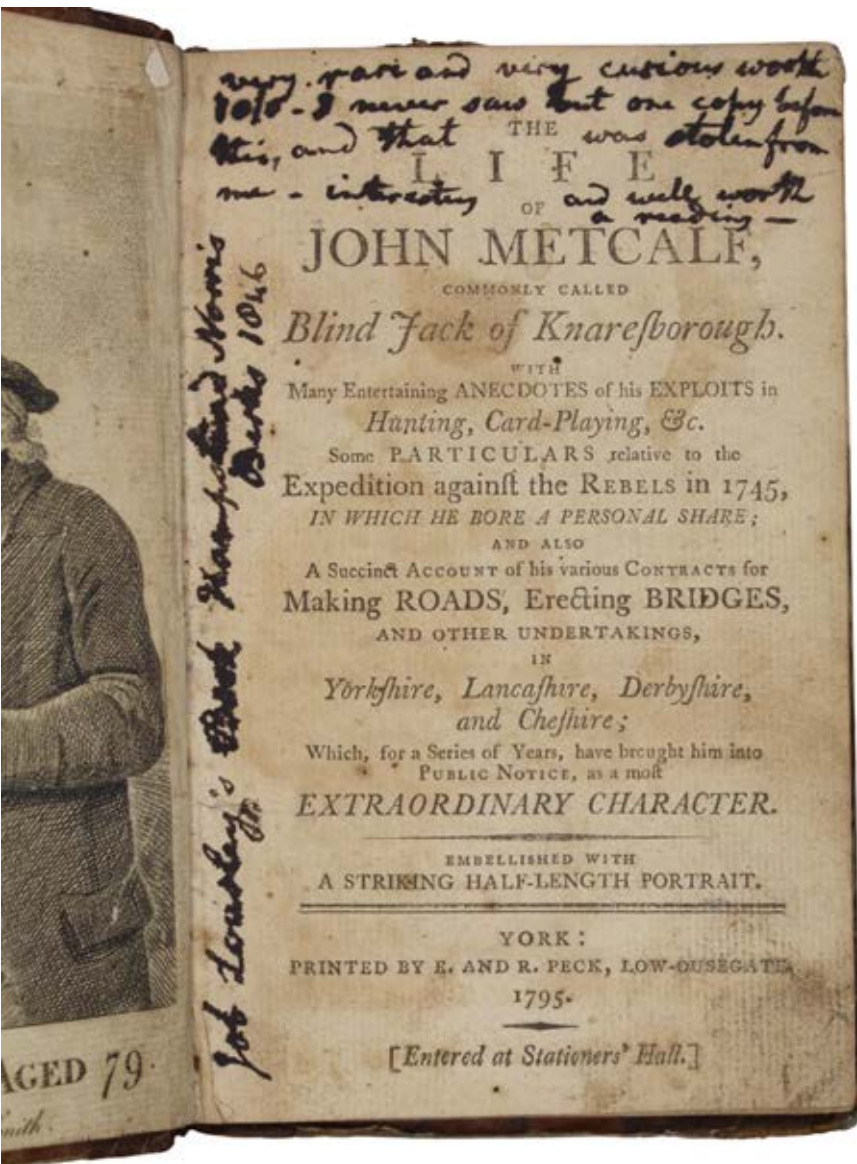 very rare and very curious worth
10/6 - I never saw but one copy before
this, and that was stolen from
me - interesting and well worth
a reading -
THE
LIFE
OF
JOHN METCALF,
COMMONLY CALLED
Blind Jack of Knareſborough.
WITH
Many Entertaining ANECDOTES of his EXPLOITS in
Hunting, Card-Playing, &c.
Some PARTICULARS relative to the
Expedition againſt the REBELS in 1745,
IN WHICH HE BORE A PERSONAL SHARE;
AND ALSO
A Succinct ACCOUNT of his various CONTRACTS for
Making ROADS, Erecting BRIDGES,
AND OTHER UNDERTAKINGS,
IN
Yorkſhire, Lancaſhire, Derbyſhire,
and Cheſhire;
Which, for a Series of Years, have brought him into
PUBLIC NOTICE, as a moſt
EXTRAORDINARY CHARACTER.
EMBELLISHED WITH
A STRIKING HALF-LENGTH PORTRAIT.
YORK:
PRINTED BY E. AND R. PECK, LOW-OUSEGATE,
1795.
[Entered at Stationers' Hall.]
Job Lousley's Book Hampstead Norris
Jr. Berks 1846
AGED 79.
mith.